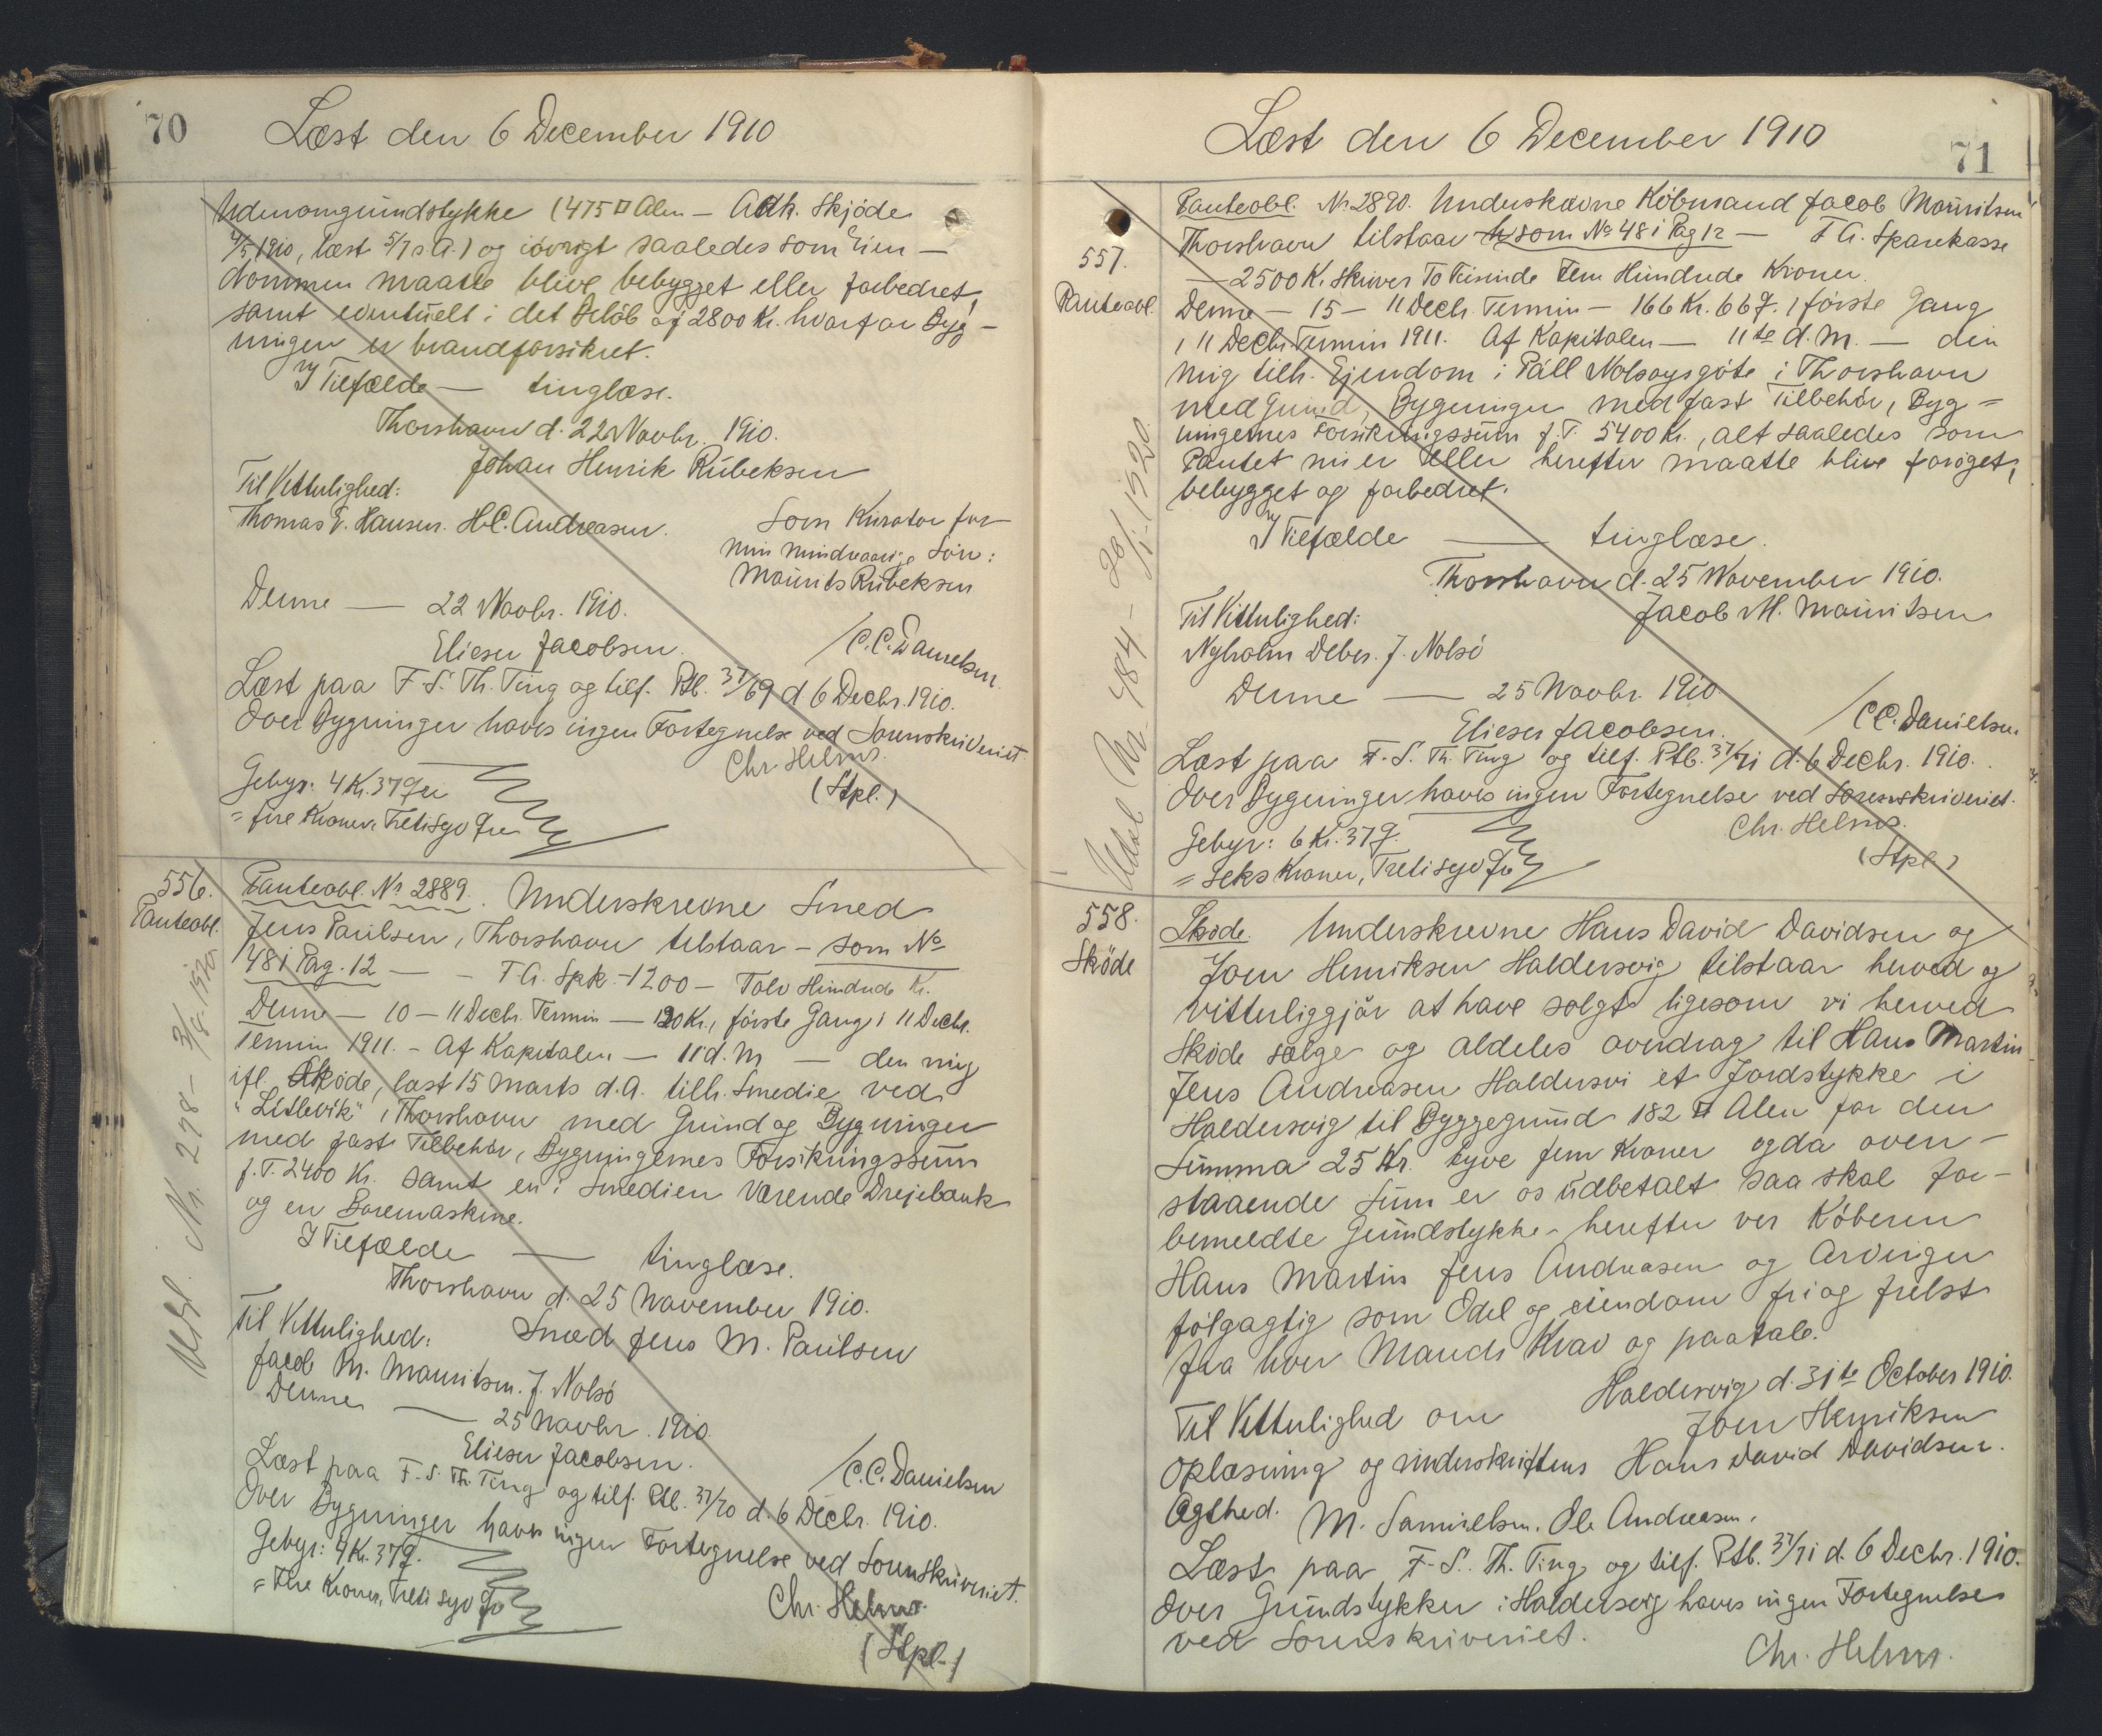 70
Læst den 6 December 1910
Udenomgrundstykke (475 □ Alen - Adk. Skjøde
4/5 1910, læst 5/7 s.A.) og iøvrigt saaledes som Eien-
dommen maatte blive bebygget eller forbedret,
samt eventuelt i det Beløb af 2800 Kr. hvorfor Byg-
ningen er brandforsikret.
I Tilfælde — tinglæse.
Thorshavn d. 22 Novbr. 1910.
Johan Henrik Rubeksen
Til Vitterlighed:
Thomas E. Hansen. H.C. Andreasen.
Som Kurator for
min mindreaarige Søn:
Maurits Rubeksen
Denne — 22 Novbr. 1910.
Elieser Jacobsen. /C.C. Danielsen
Læst paa F.S. Th. Ting og tilf. Ptb. 37/69 d 6 Decbr. 1910.
Over Bygninger haves ingen Fortegnelse ved Sorenskriveriet
Chr. Helms.
(Stpl.)
Gebyr: 4 Kr. 37 Ør
= fire Kroner, Tretisyv Øre
556.
Panteobl.
Panteobl. Nr 2889. Underskrevne Smed
Jens Paulsen, Thorshavn tilstaar - som No
48 i Pag. 12 — - F.A. Spk. - 1200 - Tolv Hundrede Kr.
Denne - 10 - 11 Decbr. Termin - 120 Kr., første Gang i 11 Decbr.
Termin 1911. - Af Kapitalen — 11' d. M — den mig
ifl. Skøde, læst 15 Marts d.A. tilh. Smedie ved
"Litlevik" i Thorshavn med Grund og Bygninger
med fast Tilbehør, Bygningernes Forsikringssum
f.T. 2400 Kr. samt en i Smedien værende Drejebænk
og en Boremaskine.
I Tilfælde — tinglæse.
Thorshavn d. 25 November 1910.
Til Vitterlighed: Smed Jens M. Paulsen
Jacob M. Mauritsen. J. Nolsø
Denne — 25 Novbr. 1910.
Elieser Jacobsen. /C.C. Danielsen
Læst paa F.S. Th. Ting og tilf. Ptb. 37/70 d. 6 Decbr. 1910.
Over Bygninger haves ingen Fortegnelse ved Sorenskriveriet.
Gebyr: 4 Kr. 37 Ø.
= Fire Kroner, Treti syv Ør
Chr. Helms.
(Stpl.)
Udsl. Nr. 278 - 3/8. 1920
71
Læst den 6 December 1910
557.
Panteobl.
Panteobl. Nr. 2890. Underskrevne Købmand Jacob Mauritsen
Thorshavn tilstaar som No 48 i Pag 12 — F.A. Sparekasse
— 2500 K. skriver To Tusinde Fem Hundrede Kroner.
Denne - 15 - 11 Decbr. Termin - 166 Kr. 66 Ø. første Gang
i 11 Decbr. Termin 1911. Af Kapitalen — 11te d. M. — den
mig tilh. Ejendom i Páll Nolsoysgöte i Thorshavn
med Grund, Bygninger med fast Tilbehør, Byg=
ningernes Forsikringssum f.T. 5400 Kr., alt saaledes som
Pantet nu er eller herefter maatte blive forøget,
bebygget og forbedret.
I Tilfælde — tinglæse.
Thorshavn d. 25 November 1910.
Til Vitterlighed: Jacob M. Mauritsen
Nyholm Debes. J. Nolsø
Denne — 25 Novbr. 1910
Elieser Jacobsen. /C.C. Danielsen
Læst paa F.S. Th. Ting og tilf. Ptb. 37/71 d. 6 Decbr. 1910.
Over Bygninger haves ingen Fortegnelse ved Sorenskriveriet.
Chr. Helms.
(Stpl.)
Gebyr: 6 Kr. 37 Ø.
= Seks Kroner, Tretisyv Ør
Udsl Nr. 484 - 1920
558.
Skøde
Skøde. Underskrevne Hans David Davidsen og
Joen Henriksen Haldersvig tilstaar herved og
vitterliggjør at have solgt ligesom vi herved
skøde sælge og aldeles overdrag til Hans Martin
Jens Andreasen Haldersvi et Jordstykke i
Haldersvig til Byggegrund 182 □ Alen for den
Summa 25 Kr. tyve fem Kroner og da oven-
staaende Sum er os udbetalt saa skal for-
bemeldte Grundstykke herefter ver Køberen
Hans Martin Jens Andreasen og Arvinger
følgagtig som Odel og eiendom fri og frelst
fra hver Mands Krav og paatale.
Haldersvig d. 31te October 1910.
Til Vitterlighed om Joen Henriksen
Oplæsning og underskriftens Hans David Davidsen.
Ægthed. M. Samuelsen. Ole Andreasen.
Læst paa F.S. Th. Ting og tilf. Ptb. 37/71 d. 6 Decbr. 1910.
Over Grundstykker i Haldersvig haves ingen Fortegnelse
ved Sorenskriveriet.
Chr. Helms.